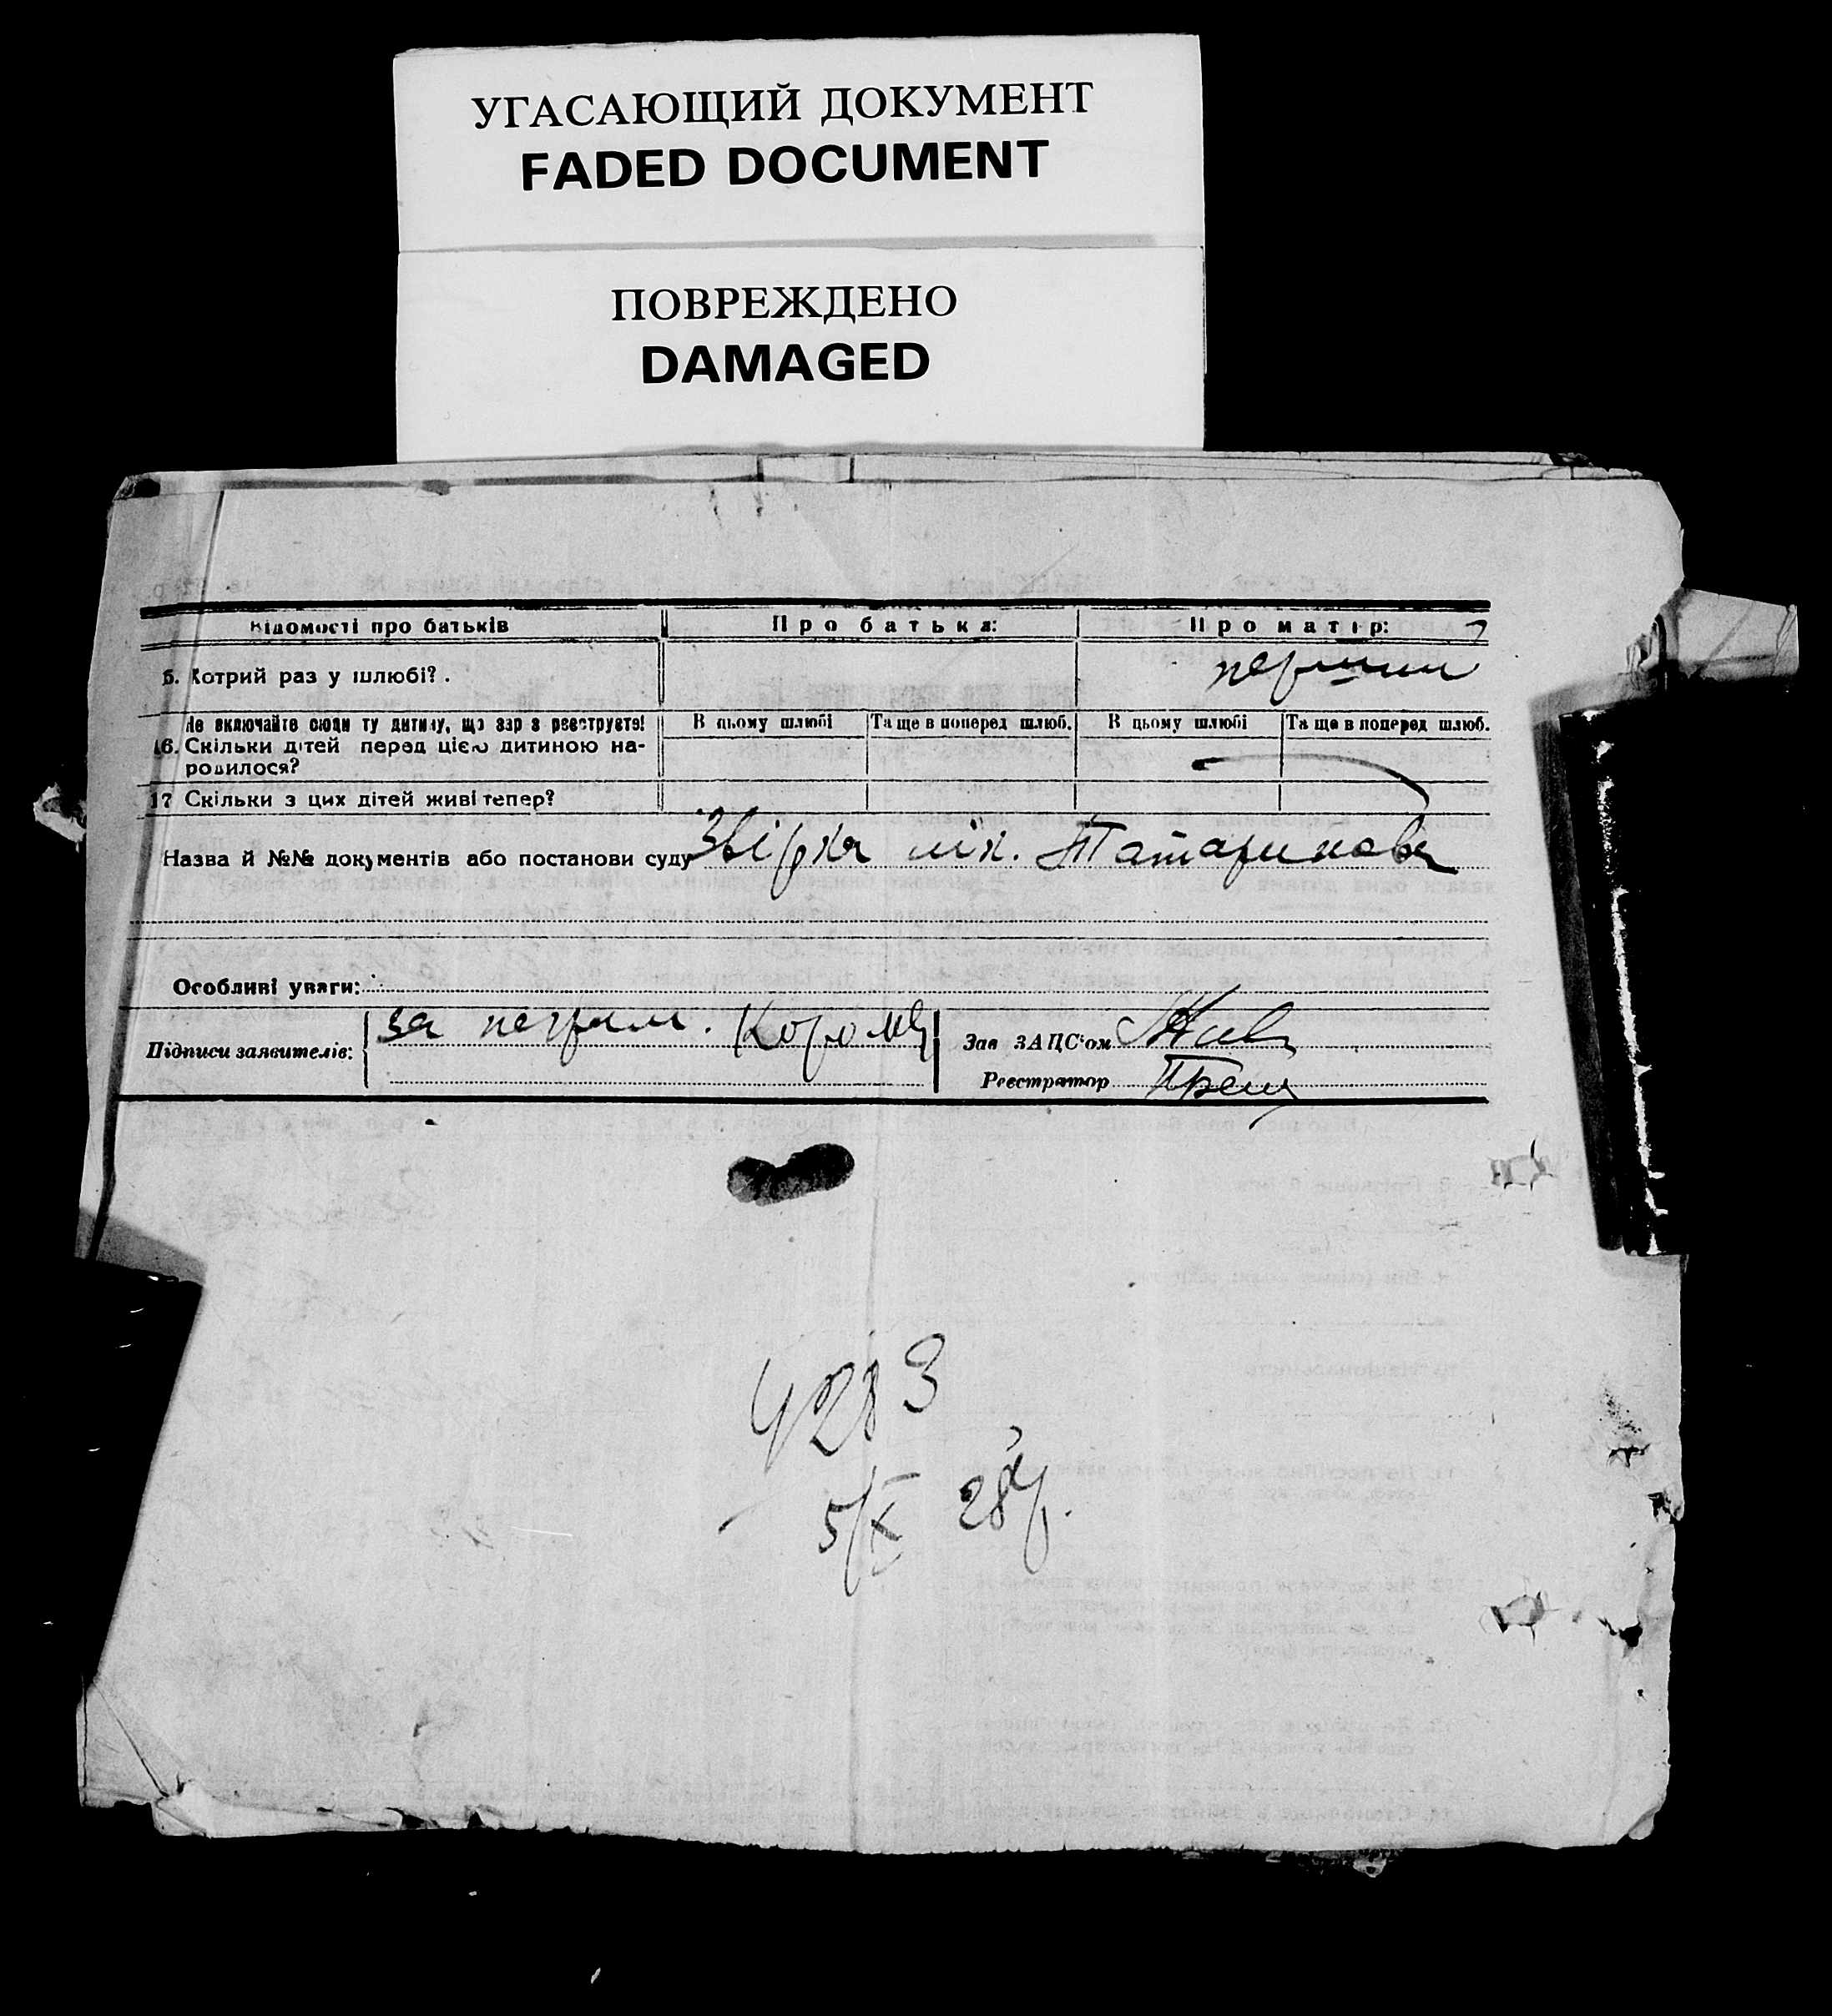 УГАСАЮЩИЙ ДОКУМЕНТ
FADED DOCUMENT
ПОВРЕЖДЕНО
DAMAGED
Відомості про батьків Про батька: Про матір:
5. Котрий раз у шлюбі? . первый
Не включайте сюди ту дитину, що зараз реєструєте! В цьому шлюбі Та ще в поперед шлюб. В цьому шлюбі Та ще в поперед шлюб.
16. Скільки дітей перед цією дитиною на-
родилося?
17 Скільки з цих дітей живі тепер?
Назва й №№ документів або постанови суду Звірка лік. Татаринова
Особливі уваги:
Підписи заявителів: за неграм. Зав ЗАЦС'ом
Реєстратор
4283
5/X 28 р.